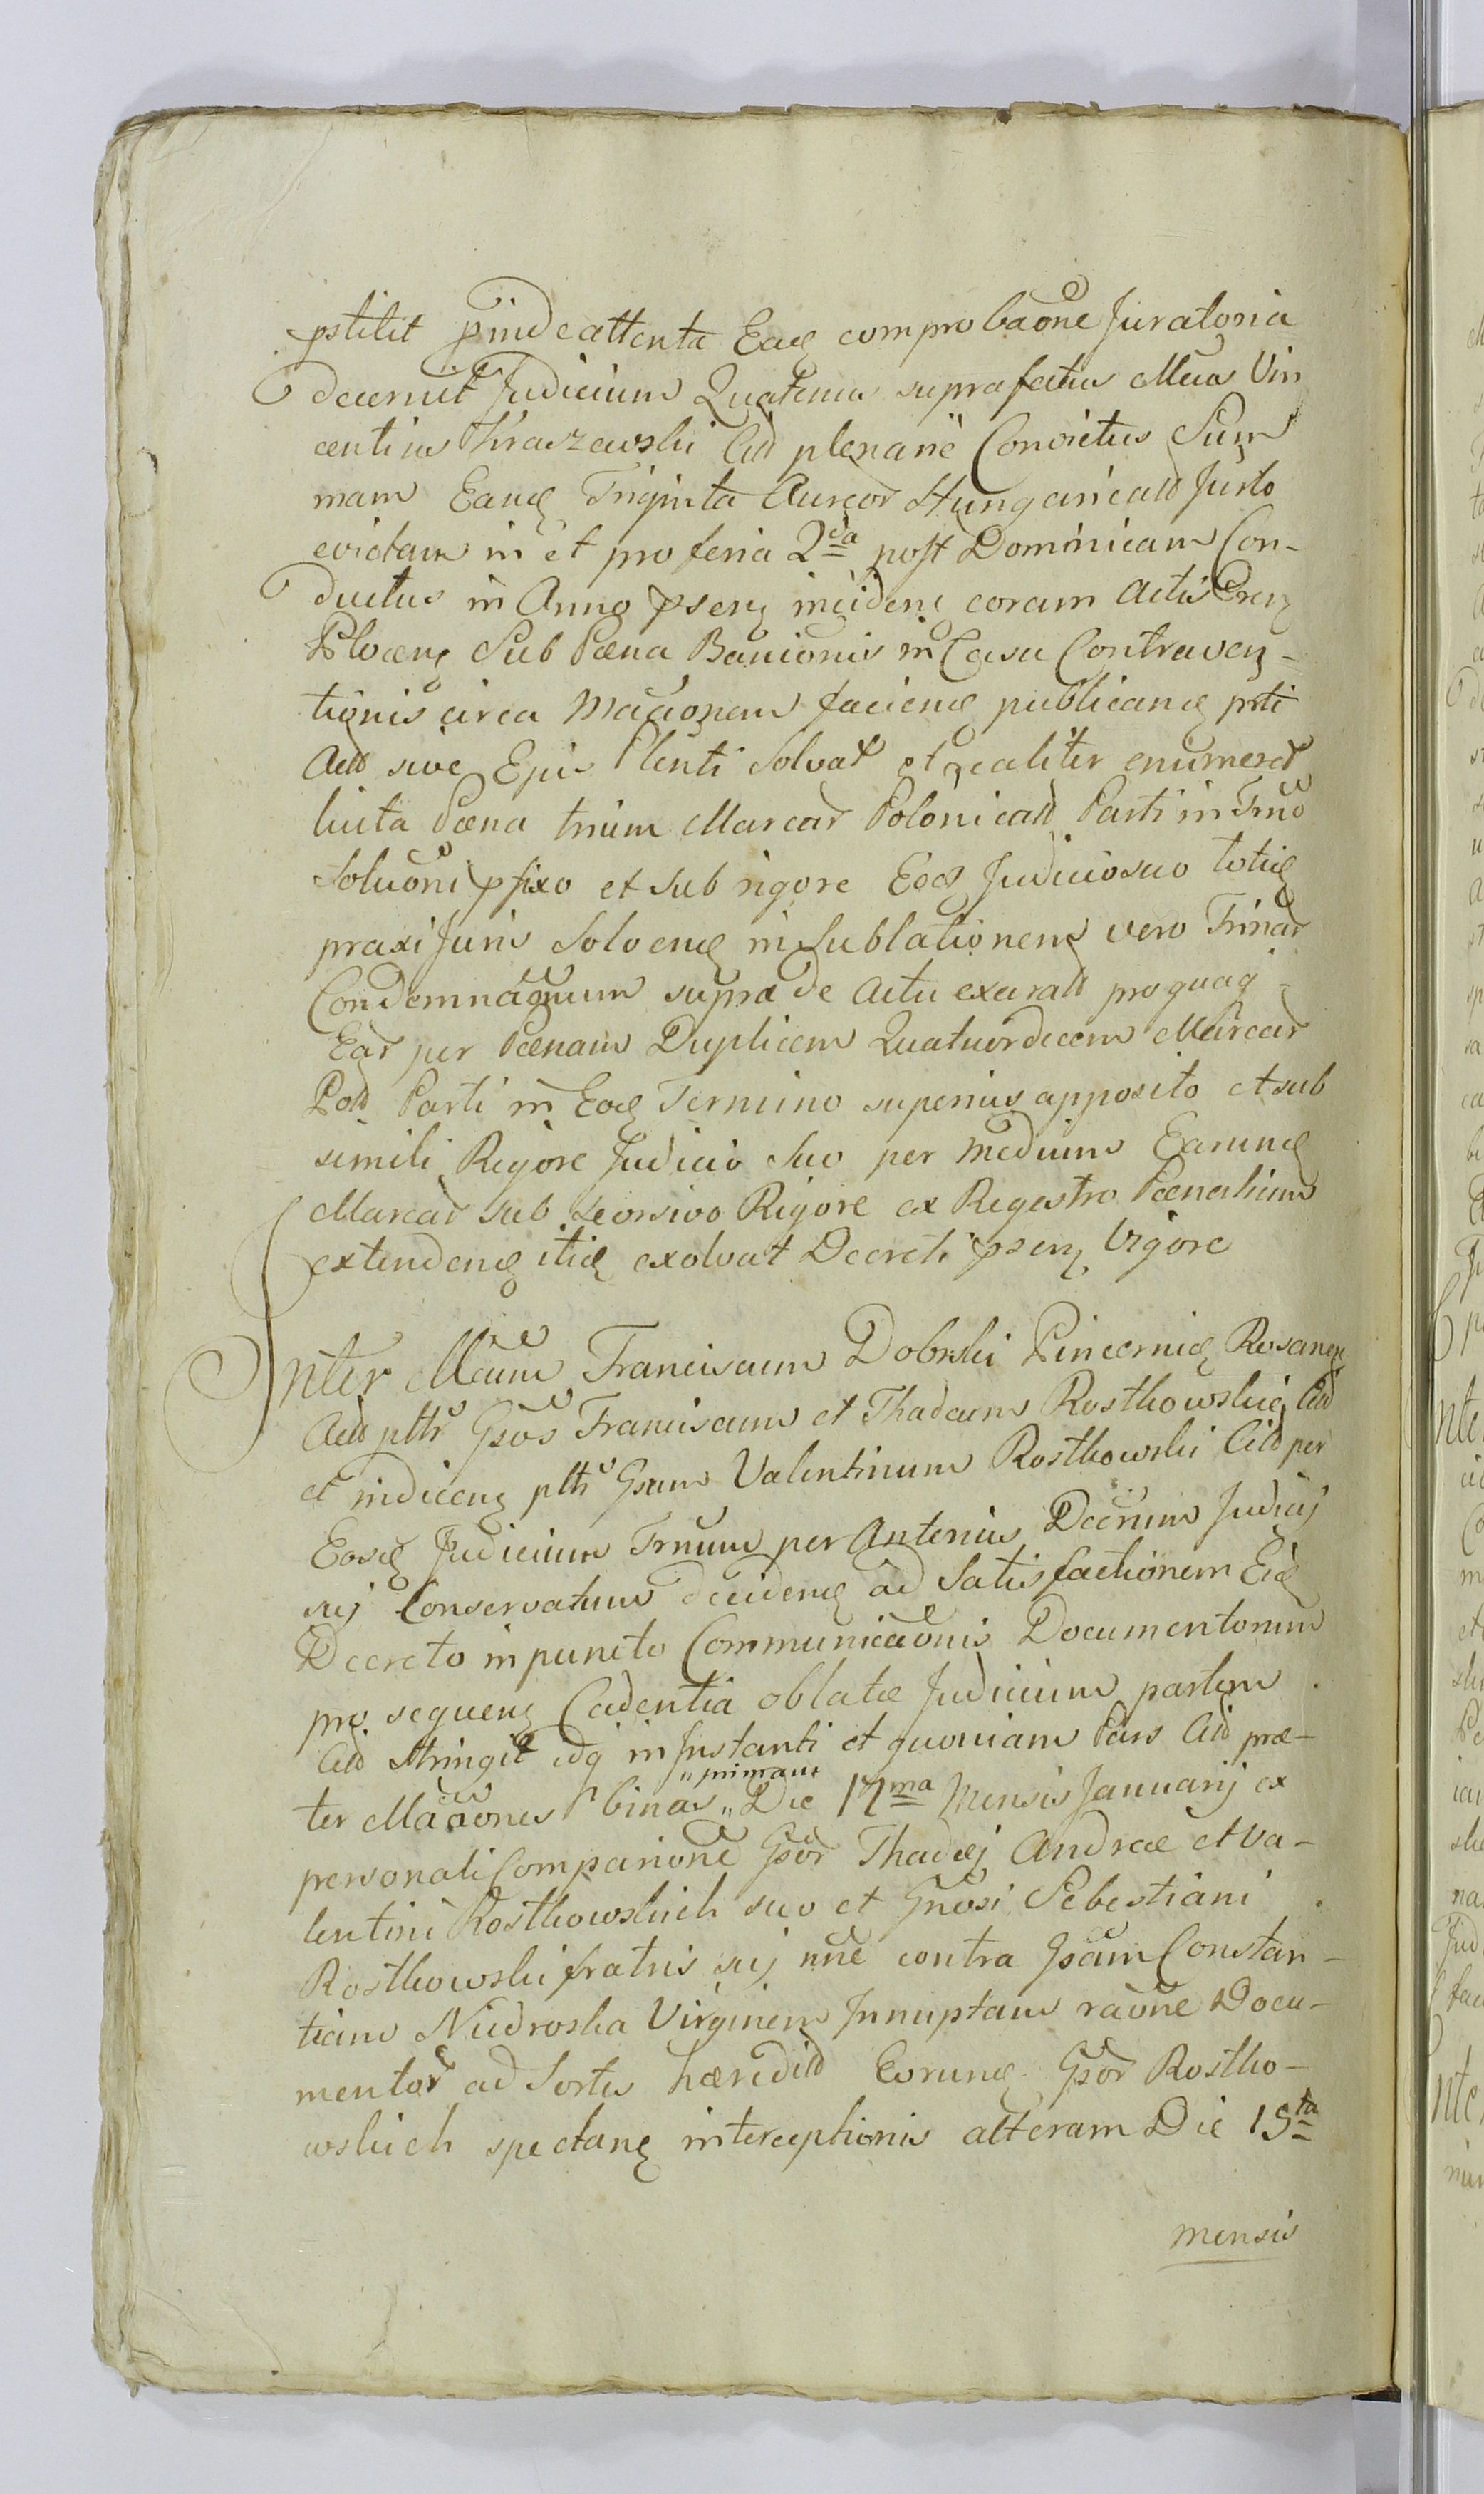 pstitit pinde attenta Eaq comprobaone Juratoria
decernit Judicium Quatenus suprafatus Mcus Vin
centius Kraszewski Citd plenarie Convictus Sum
mam Eanq Triginta Aureor Hungaricald Justo
evictam in et pro feria 2da post Dominicam Con-
ductus in Anno psenz inciden coram Actis
Sub Pæna Banionis in Casu Contraven-
tionis circa Macionem faciend publicand prti
Actd sive Ejus Plenti Solvat et realiter enumeret
luita Pæna trium Marcar Polonicald Parti in Trno
Soluoni pfixo et sub rigore Eod Judicio suo totid
praxi Juris Solvend in Sublationem vero Trinar
Condemnaonum supra de Actu exarald pro quaq
Ear per Pænam Duplicem Quatuordecem Marcar
Pold Parti in Eod Termino superius apposito et sub
simili Rigore Judicio Suo per medium Earund
Marcar sub seorsivo Rigore ex Regestro Pænalium
extendend itid exolvat Decreti psenz Vigore
Inter Mcum Franciscum Dobrski Pincernid Rosanen
Actd plttr Gsos Franciscum et Thadeum Rostkowskie Citd
et indicenz pltr Gsum Valentinum Rostkowski Citd per
Eosd Judicium Trnum per Anterius Decrum Judicij
sui Conservatum decidend ad Satisfactionem Eid
Decreto in puncto Communicaonis Documentorum
pro sequenz Cadentia oblatæ Judicium partem
Citd stringit idq in Instanti et quoniam Pars Citd præ-
ter Macaones binas „primam„ Die 17ma Mensis Januarij ex
personali Comparione Gsor Thadæj Andreæ et Va-
lentini Rostkowskich suo et Gnosi Sebestiani
Rostkowski fratris sui nne contra Gsam Constan-
tiam Niedroska Virginem Innuptam raone Docu-
mentor ad Sortes hæredild Eorund Gsor Rostko-
wskich spectanz interceptionis alteram Die 19ta
mensis